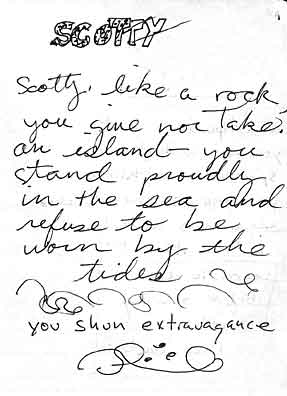 SCOTTY
Scotty, like a rock,
you give nor take.
an island - you
stand proudly
in the sea and
refuse to be
worn by the
tides
you shun extravagance